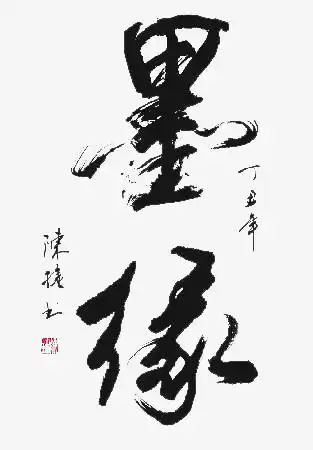 墨缘
丁丑年
陳擁书